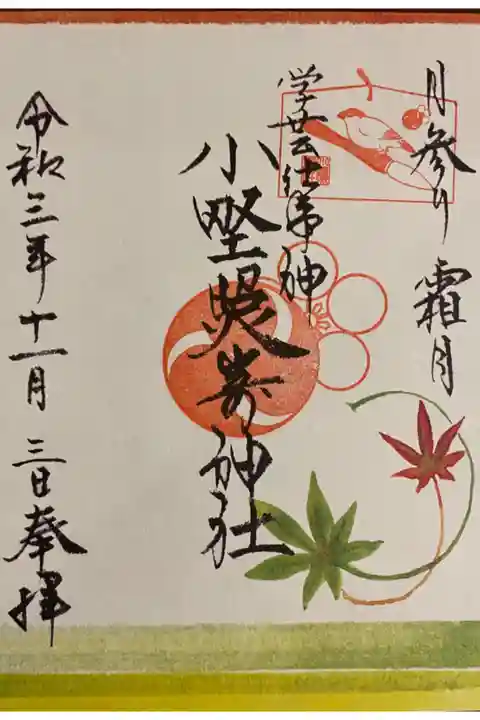 月参り 霜月
学芸仕事神
小野照崎神社
令和三年十一月三日奉拝